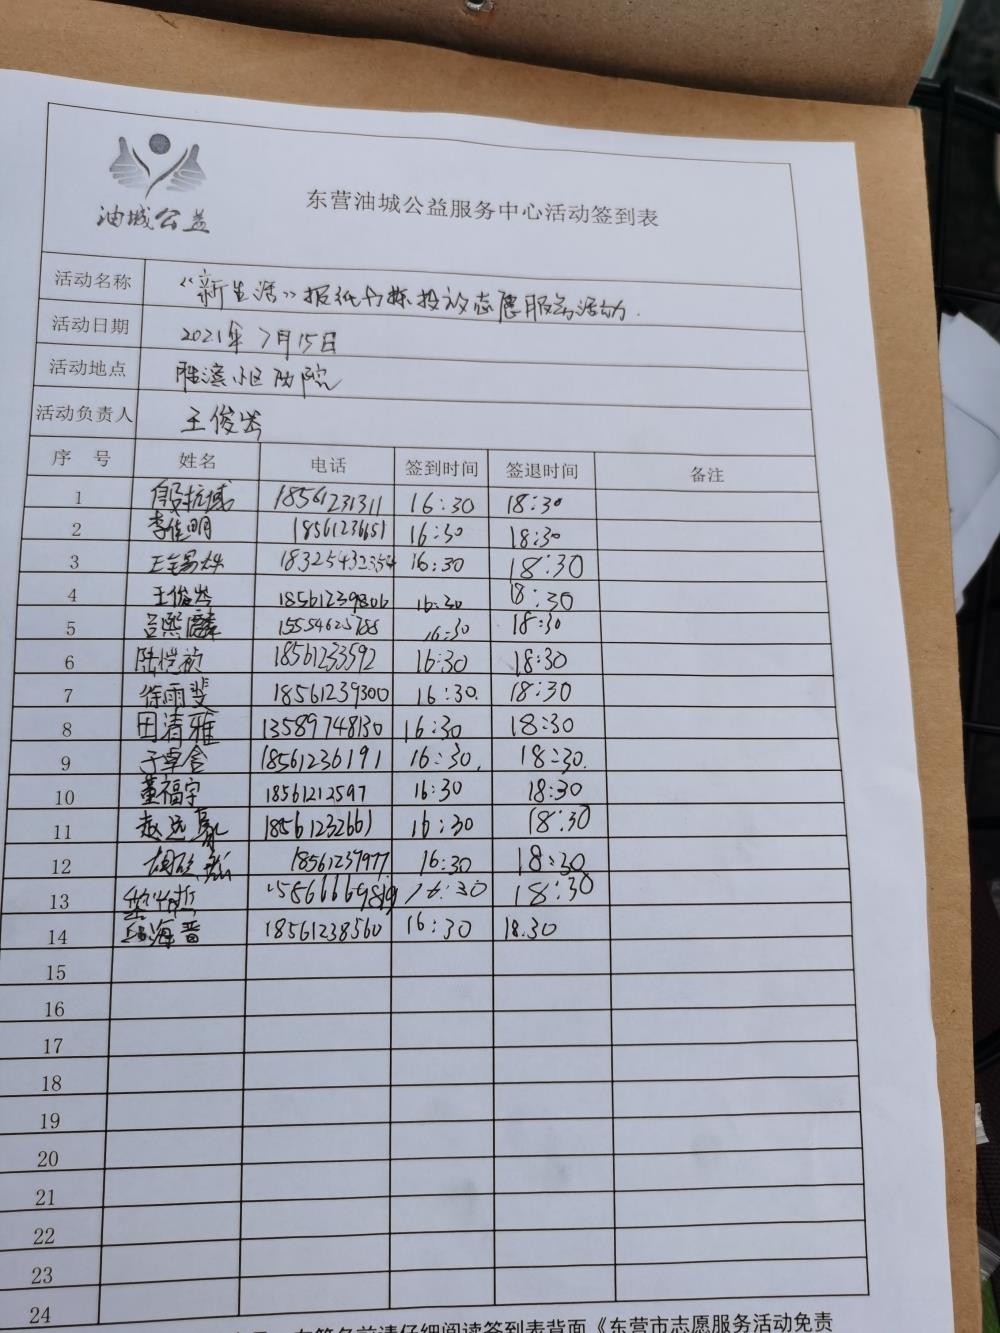 油城公益
东营油城公益服务中心活动签到表
活动名称 《新生活》报纸分拣投放志愿服务活动.
活动日期 2021年7月15日
活动地点 胜滨小区西院
活动负责人 王俊岩
序号 姓名 电话 签到时间 签退时间 备注
1 殷抗域 18561231311 16:30 18:30
2 李佳明 18561236651 16:30 18:30
3 18325432354 16:30 18:30
4 王俊岩 18561239806 16:30 18:30
5 吕熙麟 15554625788 16:30 18:30
6 陆恺祯 18561233592 16:30 18:30
7 徐雨斐 18561239300 16:30. 18:30
8 田清雅 13589748130 16:30 18:30
9 于卓含 18561236191 16:30. 18:30.
10 董福宇 18561212597 16:30 18:30
11 赵远 18561232661 16:30 18:30
12 18561237977 16:30 18:30
13 16:30 18:30
14 海晋 18561238560 16:30 18.30
15
16
17
18
19
20
21
22
23
24
在签名前请仔细阅读签到表背面《东营市志愿服务活动免责